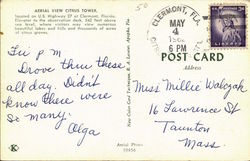 AERIAL VIEW CITRUS TOWER,
located on U.S. Highway 27 at Clermont, Florida.
Elevator to the observation deck, 542 feet above
sea level, where visitors may view numerous
beautiful lakes and hills and thousands of acres
of citrus groves.
Fri p m
Drove thru these
all day. Didn't
know there were
so many.
Olga
CLERMONT, FLA.
MAY
4
6 PM
POST CARD
Address
Miss Millie Walozak
16 Lawrence St
Taunton
Mass
K